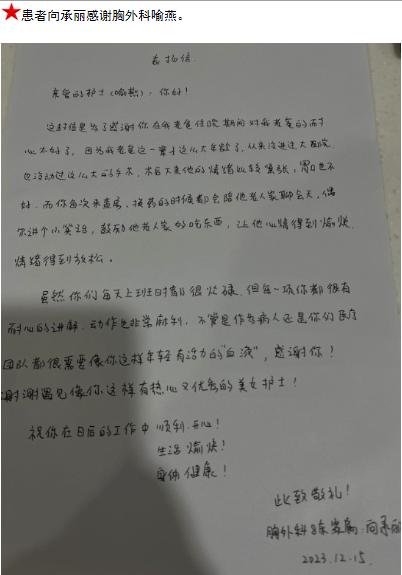 ★患者向承丽感谢胸外科喻燕。
表扬信
亲爱的护士(喻燕),你好!
这封信是为了感谢你在我老爸住院期间对我老爸的耐
心太好了,因为我老爸这一辈子这么大年龄了,从来没进过大医院
也没动过这么大的手术,术后下来他的情绪比较紧张,胃口也不
好,而你每次来查房、换药的时候都会陪他老人家聊会天,偶
尔讲个小笑话,鼓励他老人家好好吃东西,让他心情得到愉快,
情绪得到放松。
虽然你们每天上班时都很忙碌,但每一项你都很有
耐心的讲解,动作也非常麻利,不管是作为病人还是你们医疗
团队都很需要像你这样年轻有活力的"血液",感谢你!
谢谢遇见像你这样有热心又优秀的美女护士!
祝你在日后的工作中 顺利、开心!
生活愉快!
身体健康!
此致敬礼!
胸外科 家属:向承丽
2023.12.15.